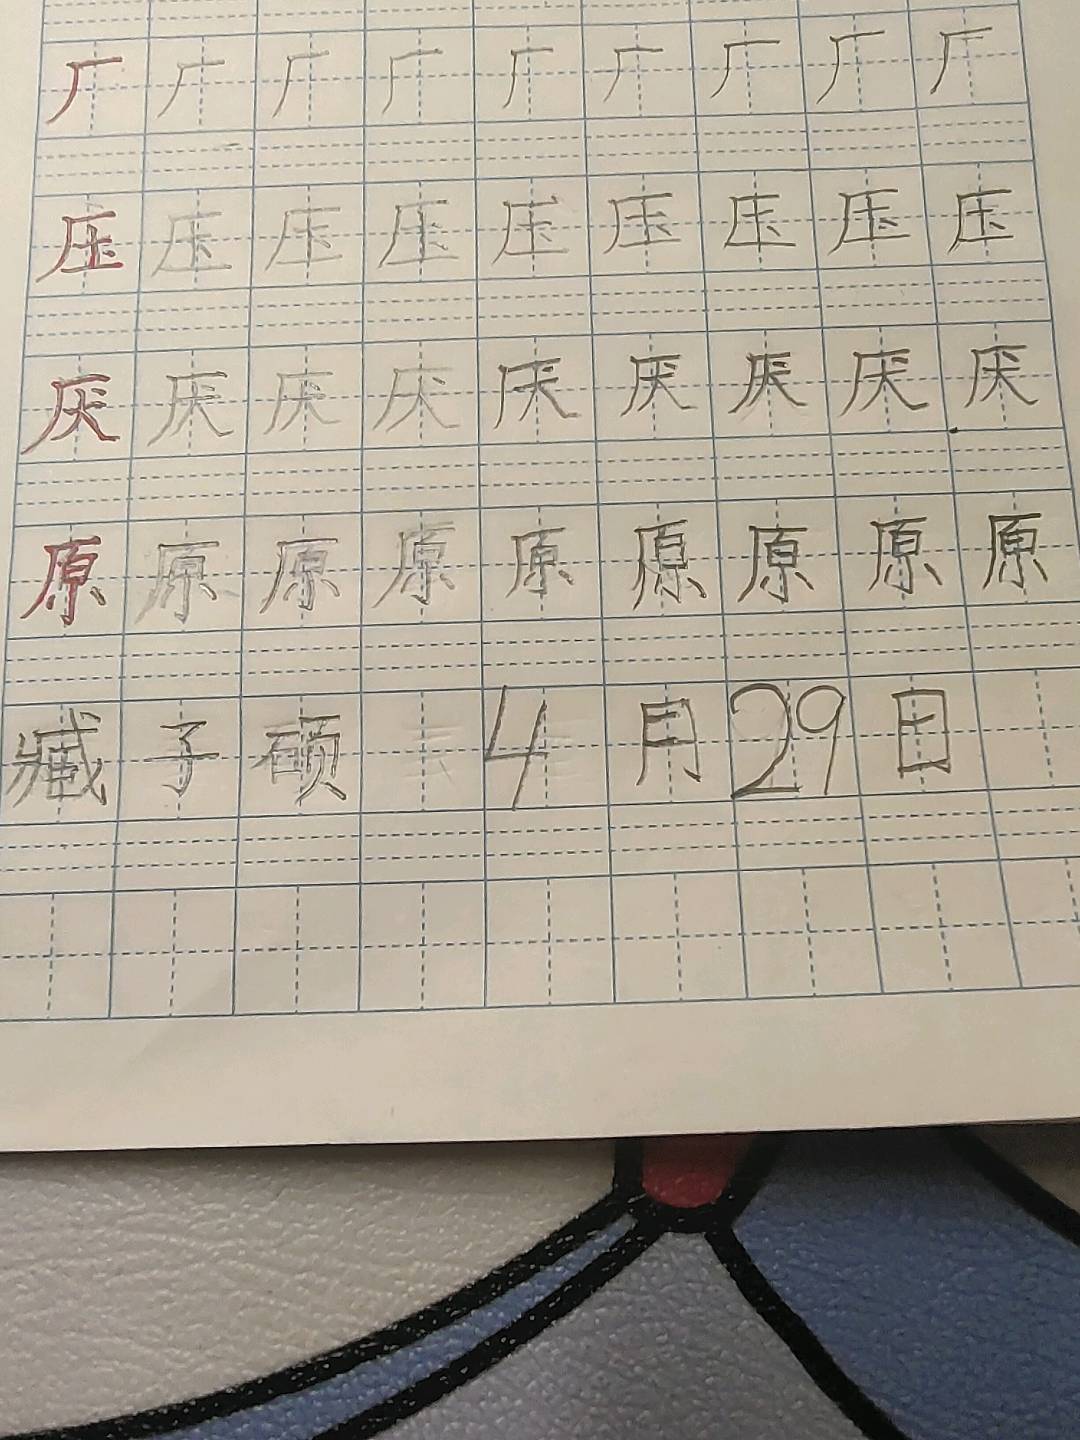 厂 厂 厂 厂 厂 厂 厂 厂 厂
压 压 压 压 压 压 压 压 压
厌 厌 厌 厌 厌 厌 厌 厌 厌
原 原 原 原 原 原 原 原 原
臧子硕 4月29日